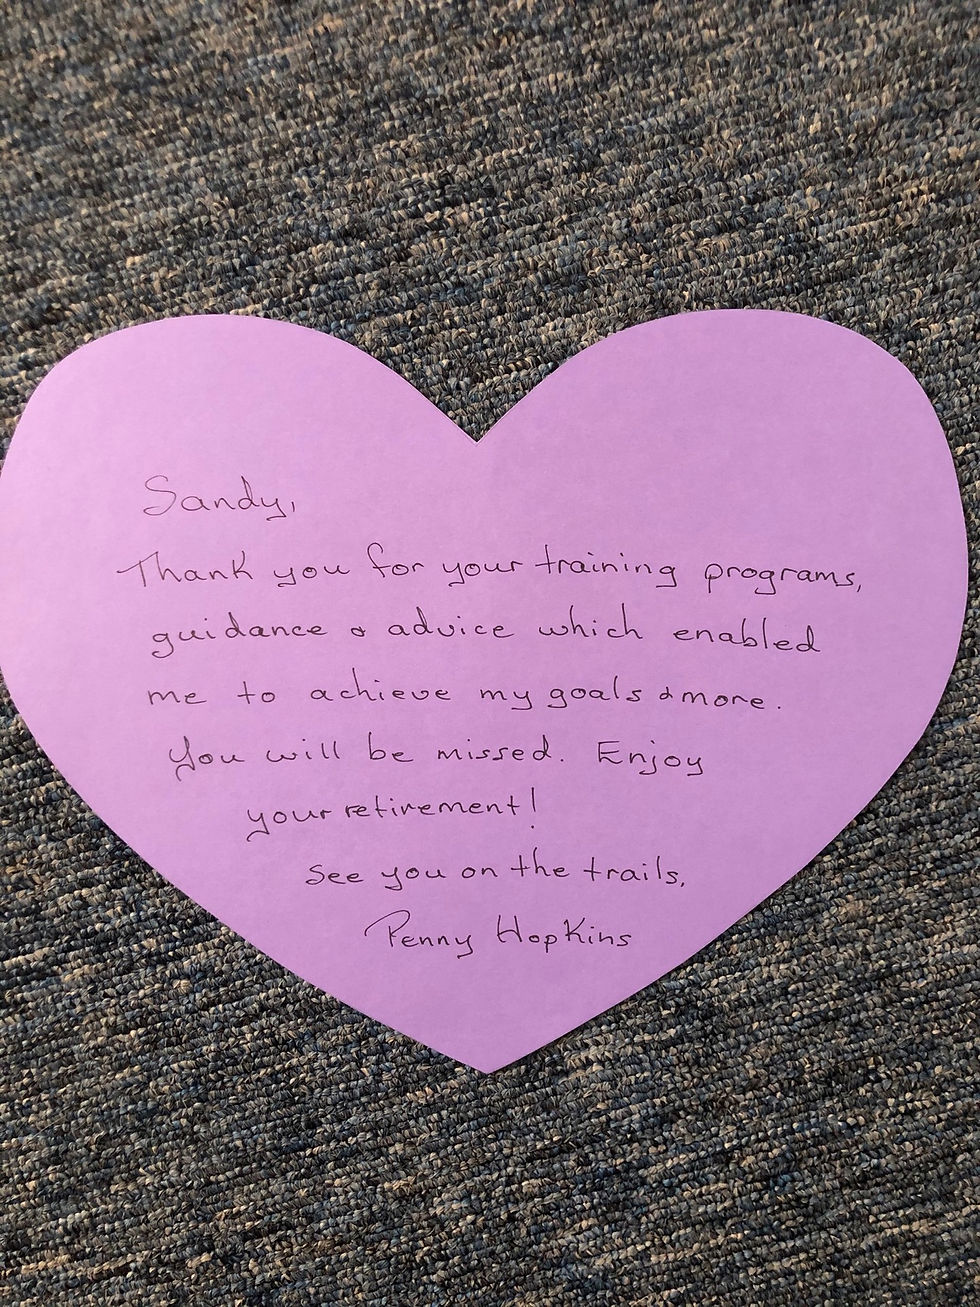 Sandy,
Thank you for your training programs,
guidance & advice which enabled
me to achieve my goals & more.
You will be missed. Enjoy
your retirement!
See you on the trails,
Penny Hopkins